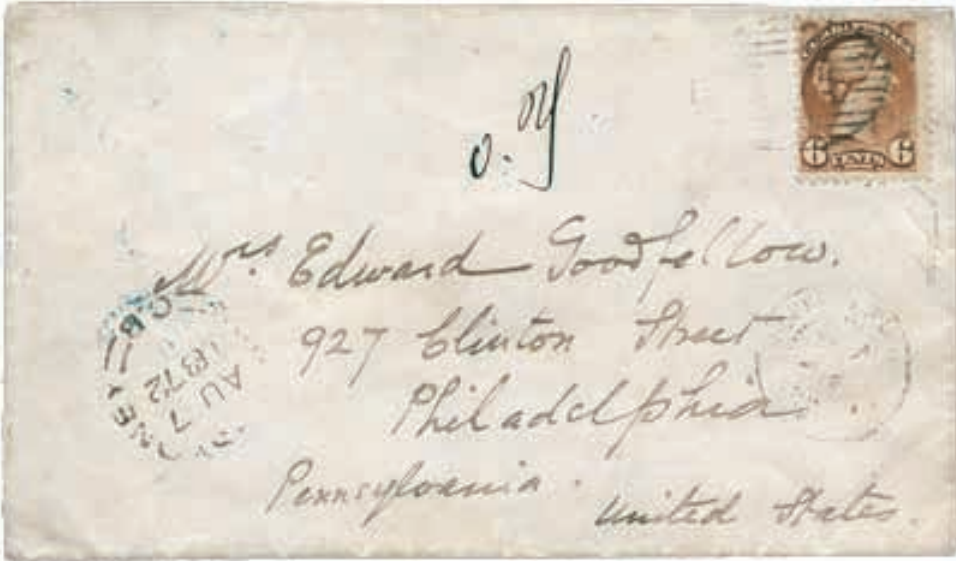 6 6
Mrs Edward Goodfellow.
927 Clinton Street
Philadelphia
Pennsylvania.
United States.
C.B.
AU 7
1872